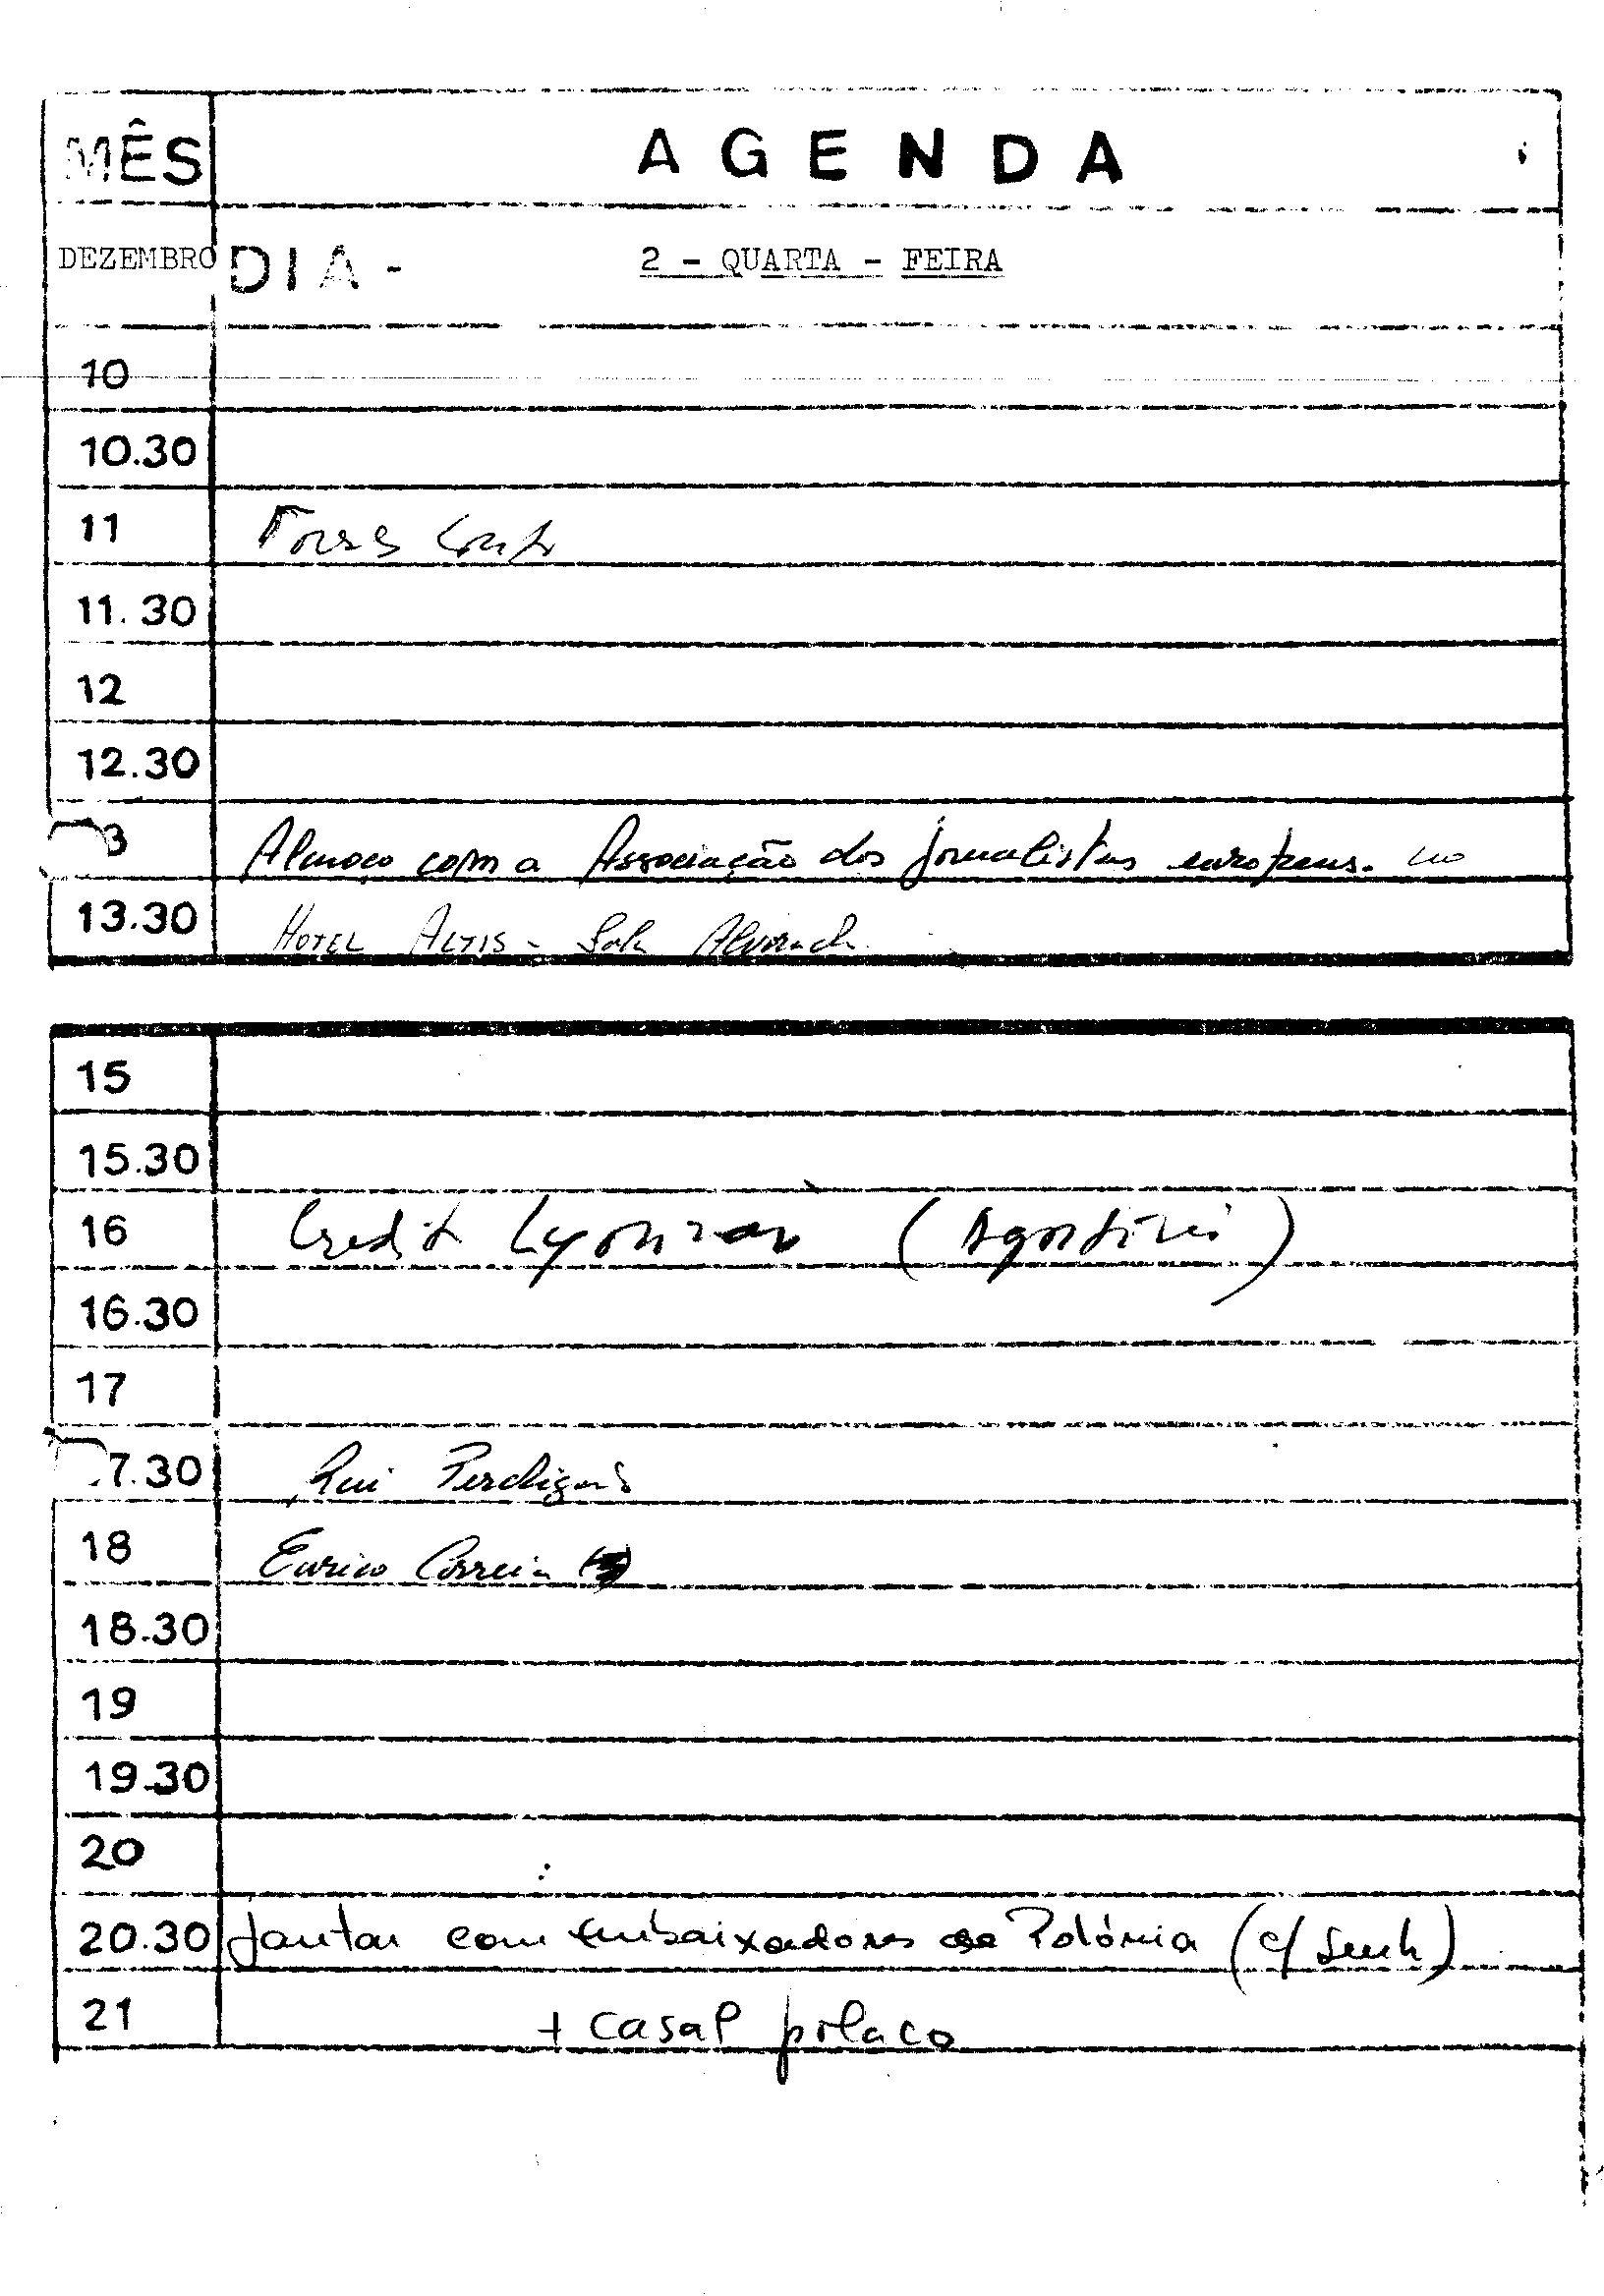 MÊS AGENDA
DEZEMBRO DIA - 2 - QUARTA - FEIRA
10
10.30
11 Torres Couto
11.30
12
12.30
3 Almoço com a Associação dos jornalistas europeus. no
13.30 HOTEL ALTIS - Sala Alvorada
15
15.30
16 Credit Lyonnais (Agostini)
16.30
17
7.30 Rui Perdigão
18 Eurico Correia
18.30
19
19.30
20
20.30 Jantar com Embaixadores da Polónia (c/ Senh)
21 + casal polaco